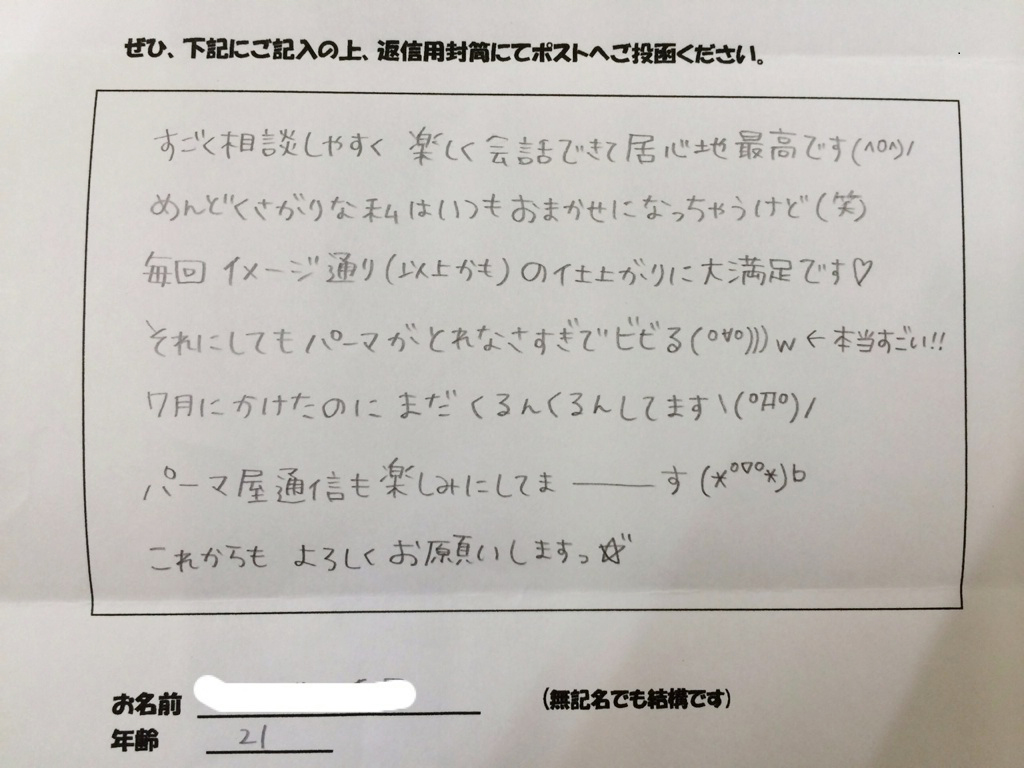 ぜひ、下記にご記入の上、返信用封筒にてポストへご投函ください。
すごく相談しやすく 楽しく会話できて居心地最高です(^o^)/
めんどくさがりな私はいつもおまかせになっちゃうけど(笑)
毎回イメージ通り(以上かも)の仕上がりに大満足です♡
それにしてもパーマがとれなさすぎでビビる(º∀º)))w ←本当すごい!!
7月にかけたのにまだくるんくるんしてます\(ºДº)/
パーマ屋通信も楽しみにしてま――す(*º▽º*)b
これからも よろしくお願いしますっ☆゛
お名前
(無記名でも結構です)
年齢 21